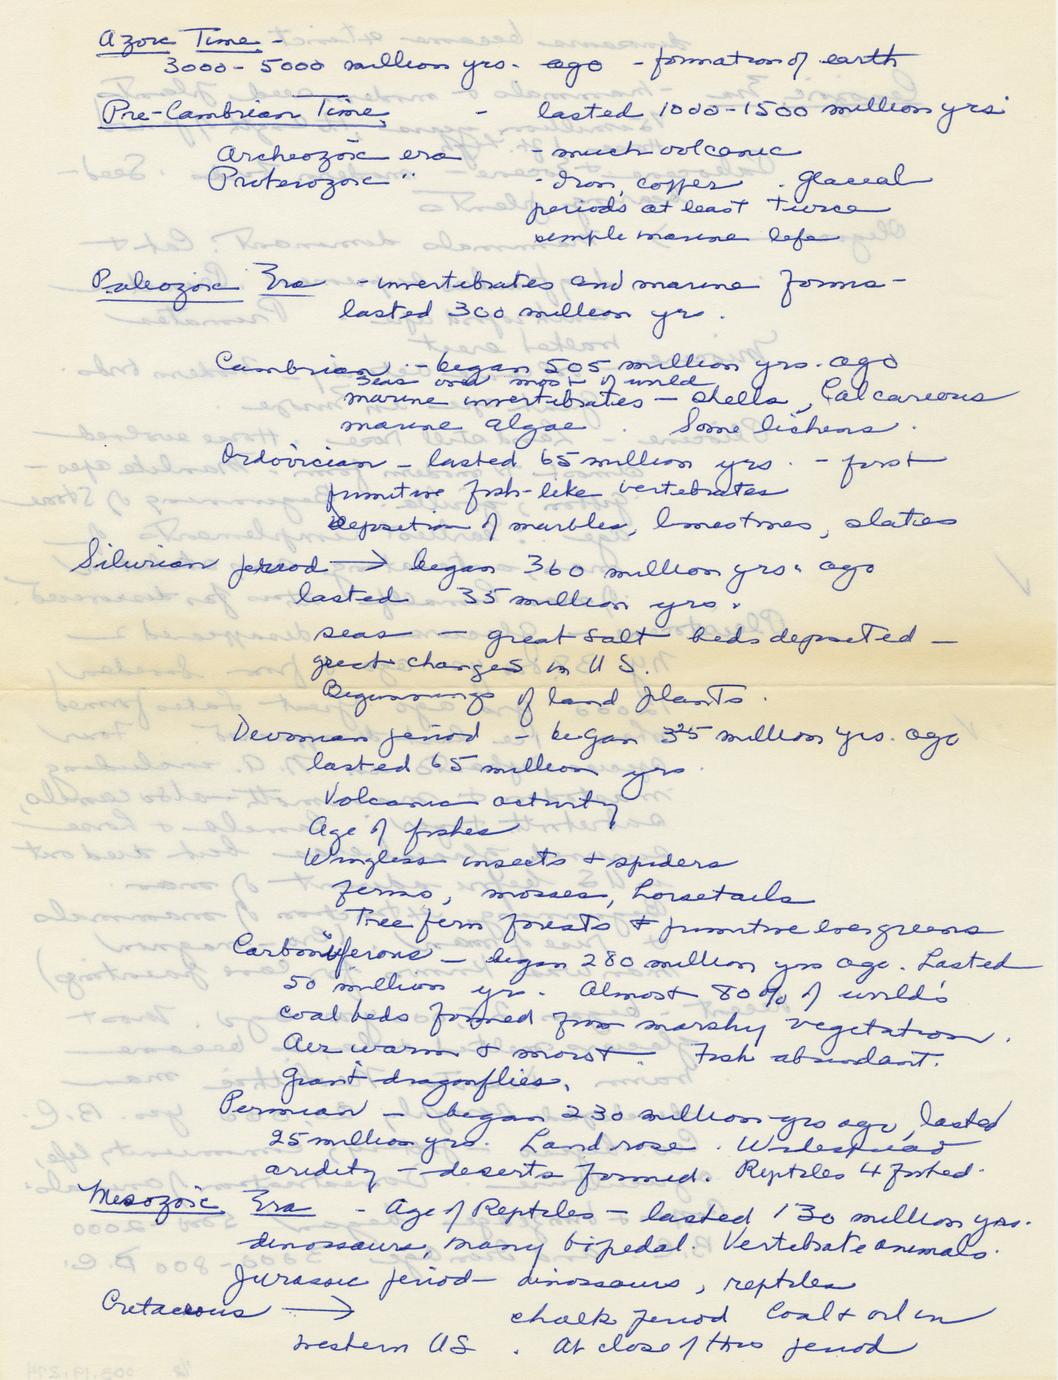 Azoic Time -
3000 - 5000 million yrs. ago - formation of earth
Pre-Cambrian Time, - lasted 1000-1500 million yrs.
Archeozoic era - much volcanic
Proterozoic " - Iron, copper. glacial
periods at least twice
simple marine life
Paleozoic Era - invertebrates and marine forms -
lasted 300 million yrs.
Cambrian - began 505 million yrs. ago
seas over most of world
marine invertebrates - shells, Calcareous
marine algae. Some lichens.
Ordovician - lasted 65 million yrs. - first
primitive fish-like vertebrates
deposition of marbles, limestones, slates
Silurian period → began 360 million yrs. ago
lasted 35 million yrs.
seas - great salt beds deposited -
great changes in U.S.
Beginnings of land plants.
Devonian period - began 325 million yrs. ago
lasted 65 million yrs.
Volcanic activity
Age of fishes
Wingless insects & spiders
ferns, mosses, horsetails
Tree fern forests & primitive evergreens
Carboniferous - began 280 million yrs ago. Lasted
50 million yr. Almost 80% of world's
coal beds formed from marshy vegetation.
Air warm & moist - Fish abundant.
Giant dragonflies.
Permian - began 230 million yrs ago, lasted
25 million yrs. Land rose. Widespread
aridity - deserts formed. Reptiles 4 footed.
Mesozoic Era - Age of Reptiles - lasted 130 million yrs.
dinosaurs, many bipedal. Vertebrate animals.
Jurassic period - dinosaurs, reptiles
Cretaceous → chalk period Coal & oil in
western US. At close of this period